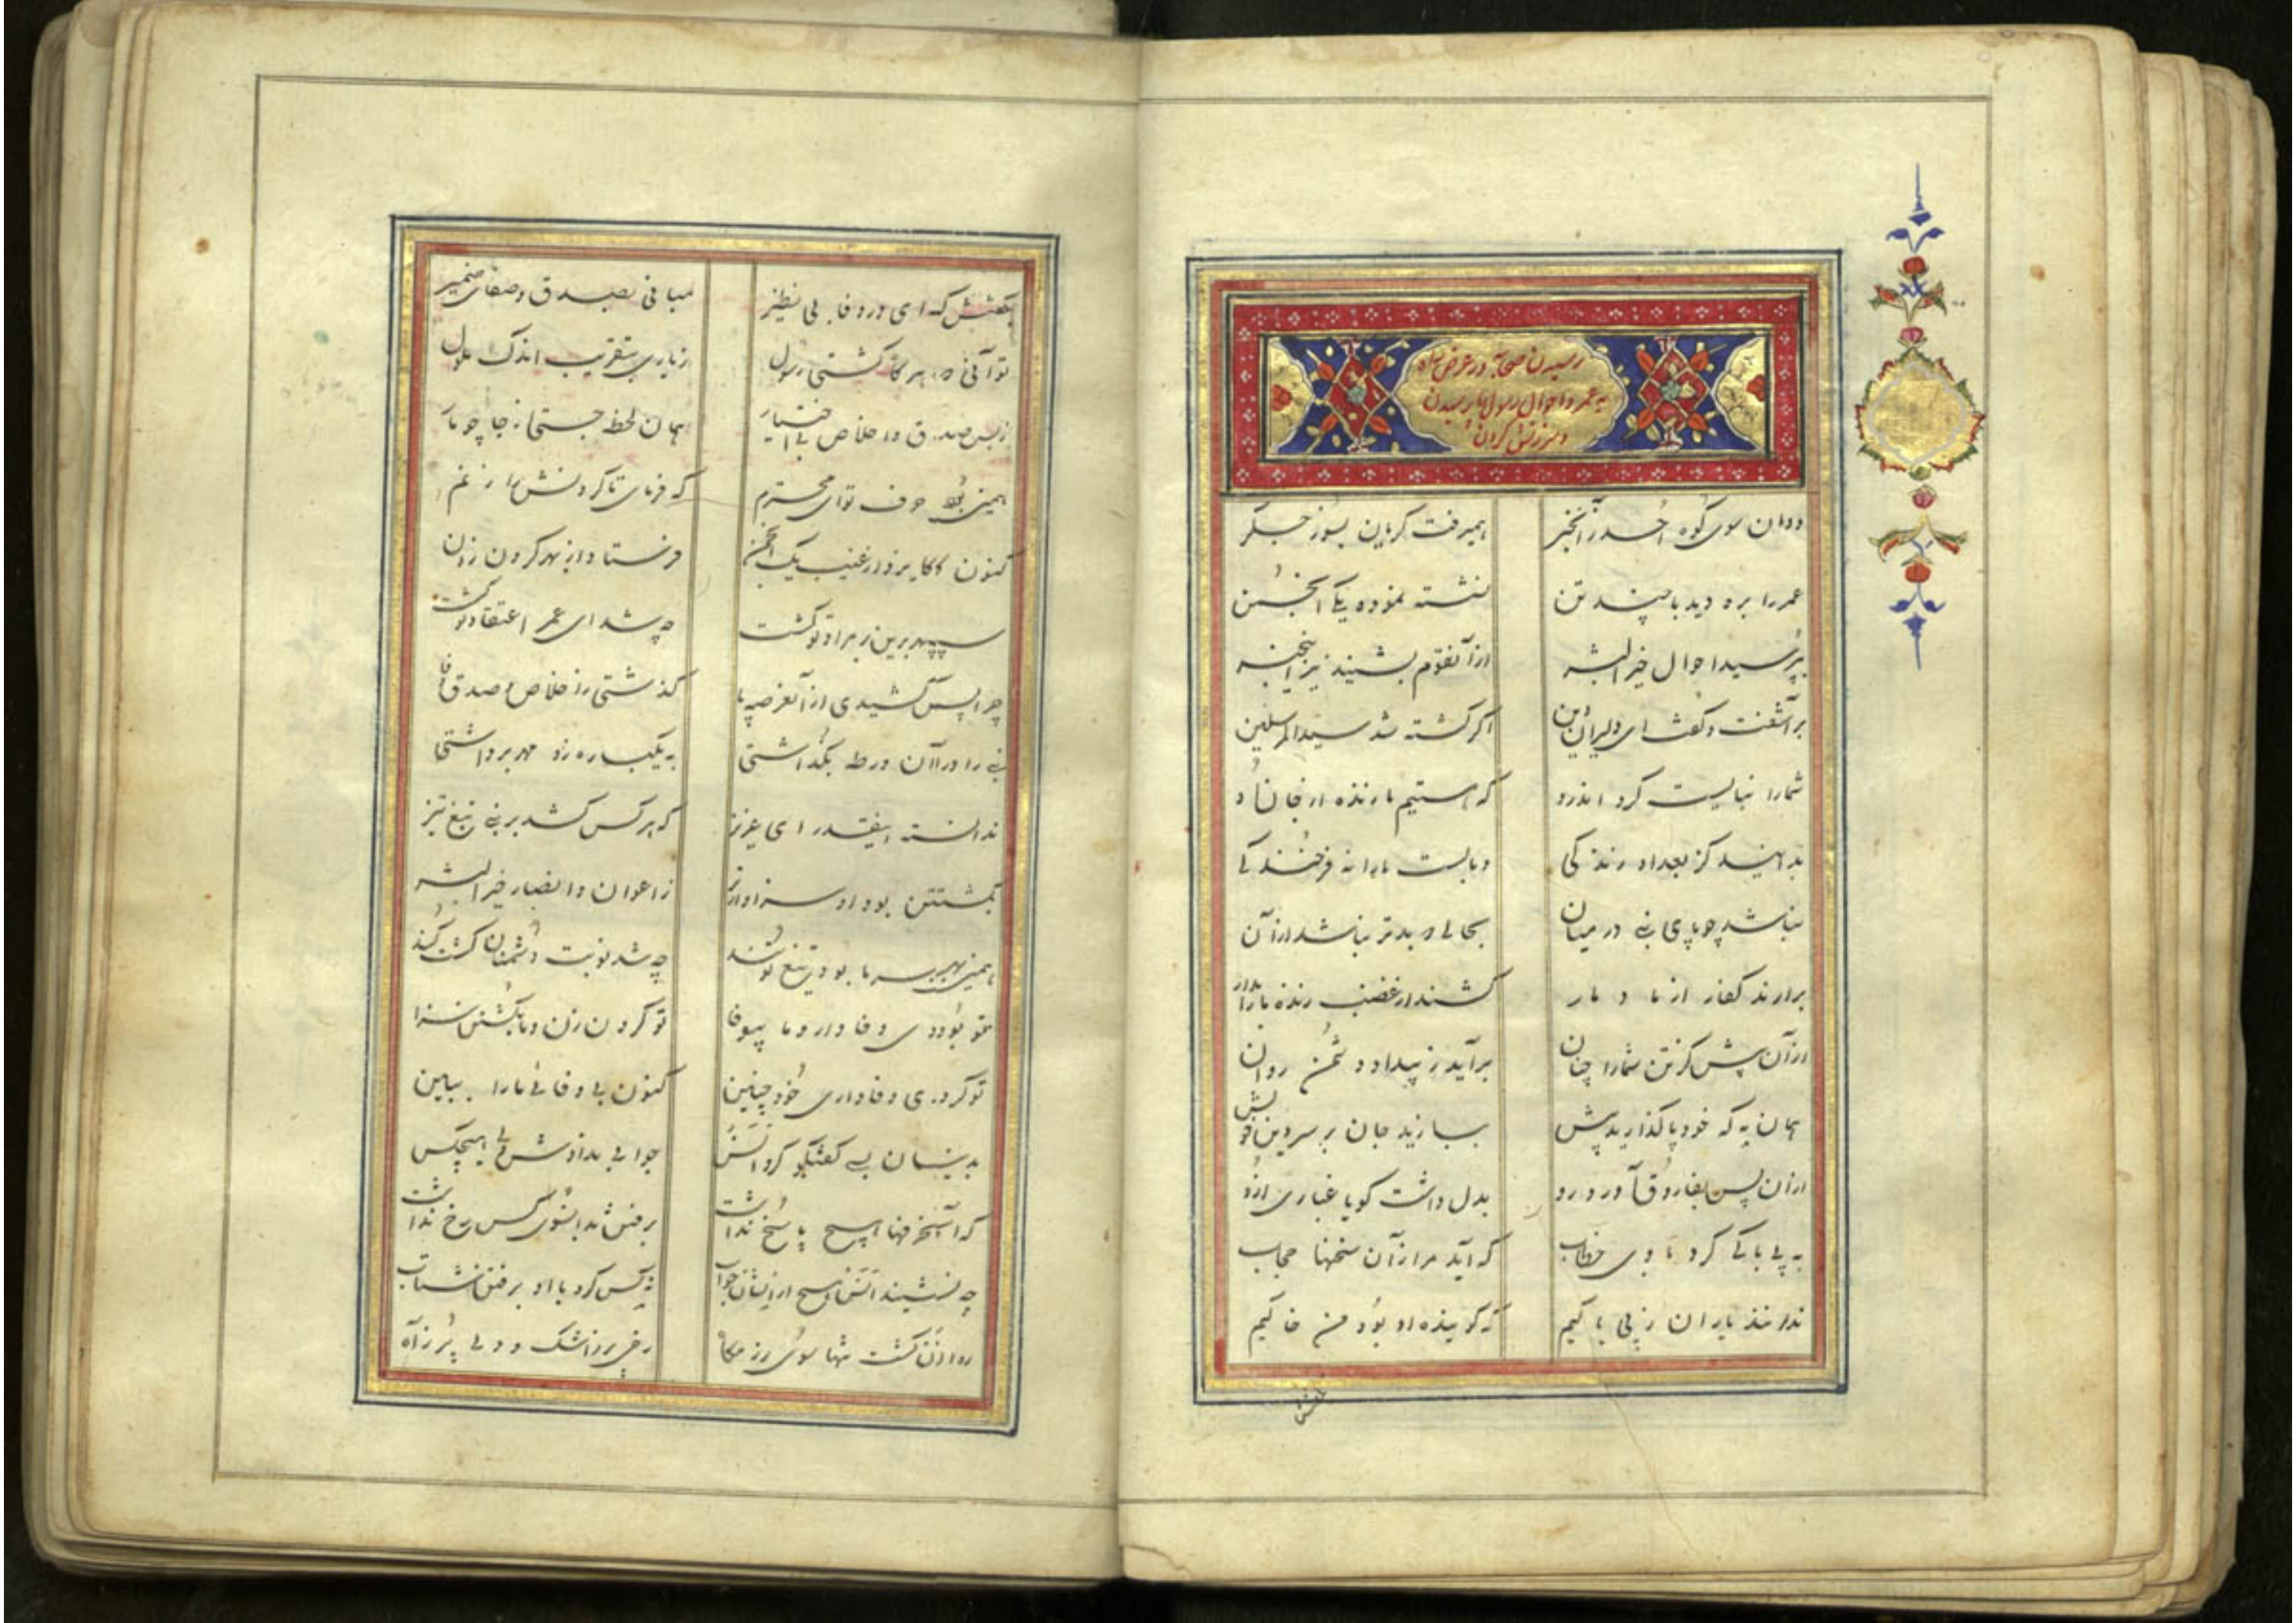 رسیدن صحابه در عرض راه
به عمر و احوال رسول پرسیدن
و سرزنش کردن
دوان سوی کوه احد زان خبر همیرفت گریان بسوز جگر
عمر را بره دید با چند تن نشسته نموده یکی انجمن
بپرسید احوال خیر البشر ازآنقوم بشنید نیز اینخبر
برآشفت و گفت ای دلیران دین اگر کشته شد سید المرسلین
شما را نبایست کرد که هستیم ما زنده او جان داد
بدانید کز بعد او زندگی وبالست ما را نه فرخندگی
نباشد چو پای نبی در میان بحالی و بدتر نباشد ازآن
برارند کفار از ما دمار کشند از غضب زنده ما را بدار
ازآن پیش کز تن شما را چنان برآید ز بیداد دشمن روان
همان به که خود پا گذارید پیش ببازید جان بر سر دین خویش
ازان پس بفاروق آورد رو بدل داشت گویا غباری ازو
به بی باکی کرد با وی خطاب که آید مرا زآن سخنها حجاب
ندانند یاران ز بی باکیم که گوینده او بود من حاکیم
بگفتش
بگفتش که ای در وفا بی نظیر میافی بصدق و صفای ضمیر
تو آنی که هر گاه گشتی رسول ز یاری بتقریب اندک ملول
ز بس صدق و اخلاص بی اختیار همان لحظه جستی ز جا چو مار
همین بود حرف تو ای محترم که فرمای تا گردنش را زنم
کنون کامد از غیب یک انجمن فرستاد از بهر گردن زدن
سپهر برین بر مراد تو گشت چه شد ای عمر اعتقاد تو گشت
چرا پس کشیدی ازآنعرصه پا گذشتی ز اخلاص و صدق و وفا
نبی را در آن ورطه بگذاشتی به یکباره زو مهر برداشتی
ندانسته اینقدر ای عزیز که هر کس کشد بر نبی تیغ تیز
بکشتن بود او سزاوارتر ز اعوان و انصار خیر البشر
همین بهر سر ما بودی تیغ تو تند چه شد نوبت دشمنان گشت کند
تو بودی وفادار و ما بیوفا تو گردن زن و ما بکشتن سزا
تو کردی وفاداری خود چنین کنون بی وفائی ما را ببین
بدینسان بسی گفتگو کرد انس جوابی ندادش ولی هیچکس
که آنحرفها هیچ پاسخ نداشت برفتن بدانسوی کس رخ نداشت
چه نشنید انس هیچ ازایشان جواب نه کس کرد با او برفتن شتاب
روان گشت تنها سوی رزمگاه رخی پر ز اشک و دلی پر ز آه